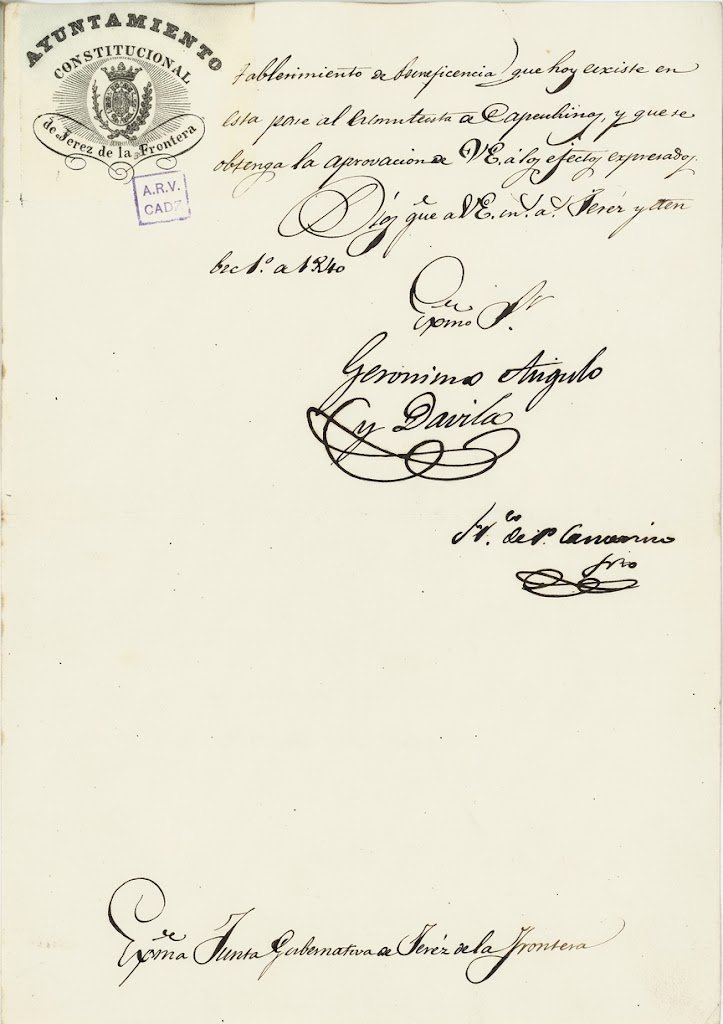 AYUNTAMIENTO
CONSTITUCIONAL
de Jerez de la Frontera
A.R.V.
CADZ
tablecimiento de beneficencia) que hoy existe en
esta pase al de Capuchinos, y que se
obtenga la aprovacion de VE. á los efectos expresados.
Dios gue a VE. m. a. Jeréz y
bre 1º. de 1840
Exmo Sr.
Geronimo Angulo
y Davila
Frco. de P.
srio
Exma Junta Gubernativa de Jeréz de la Frontera